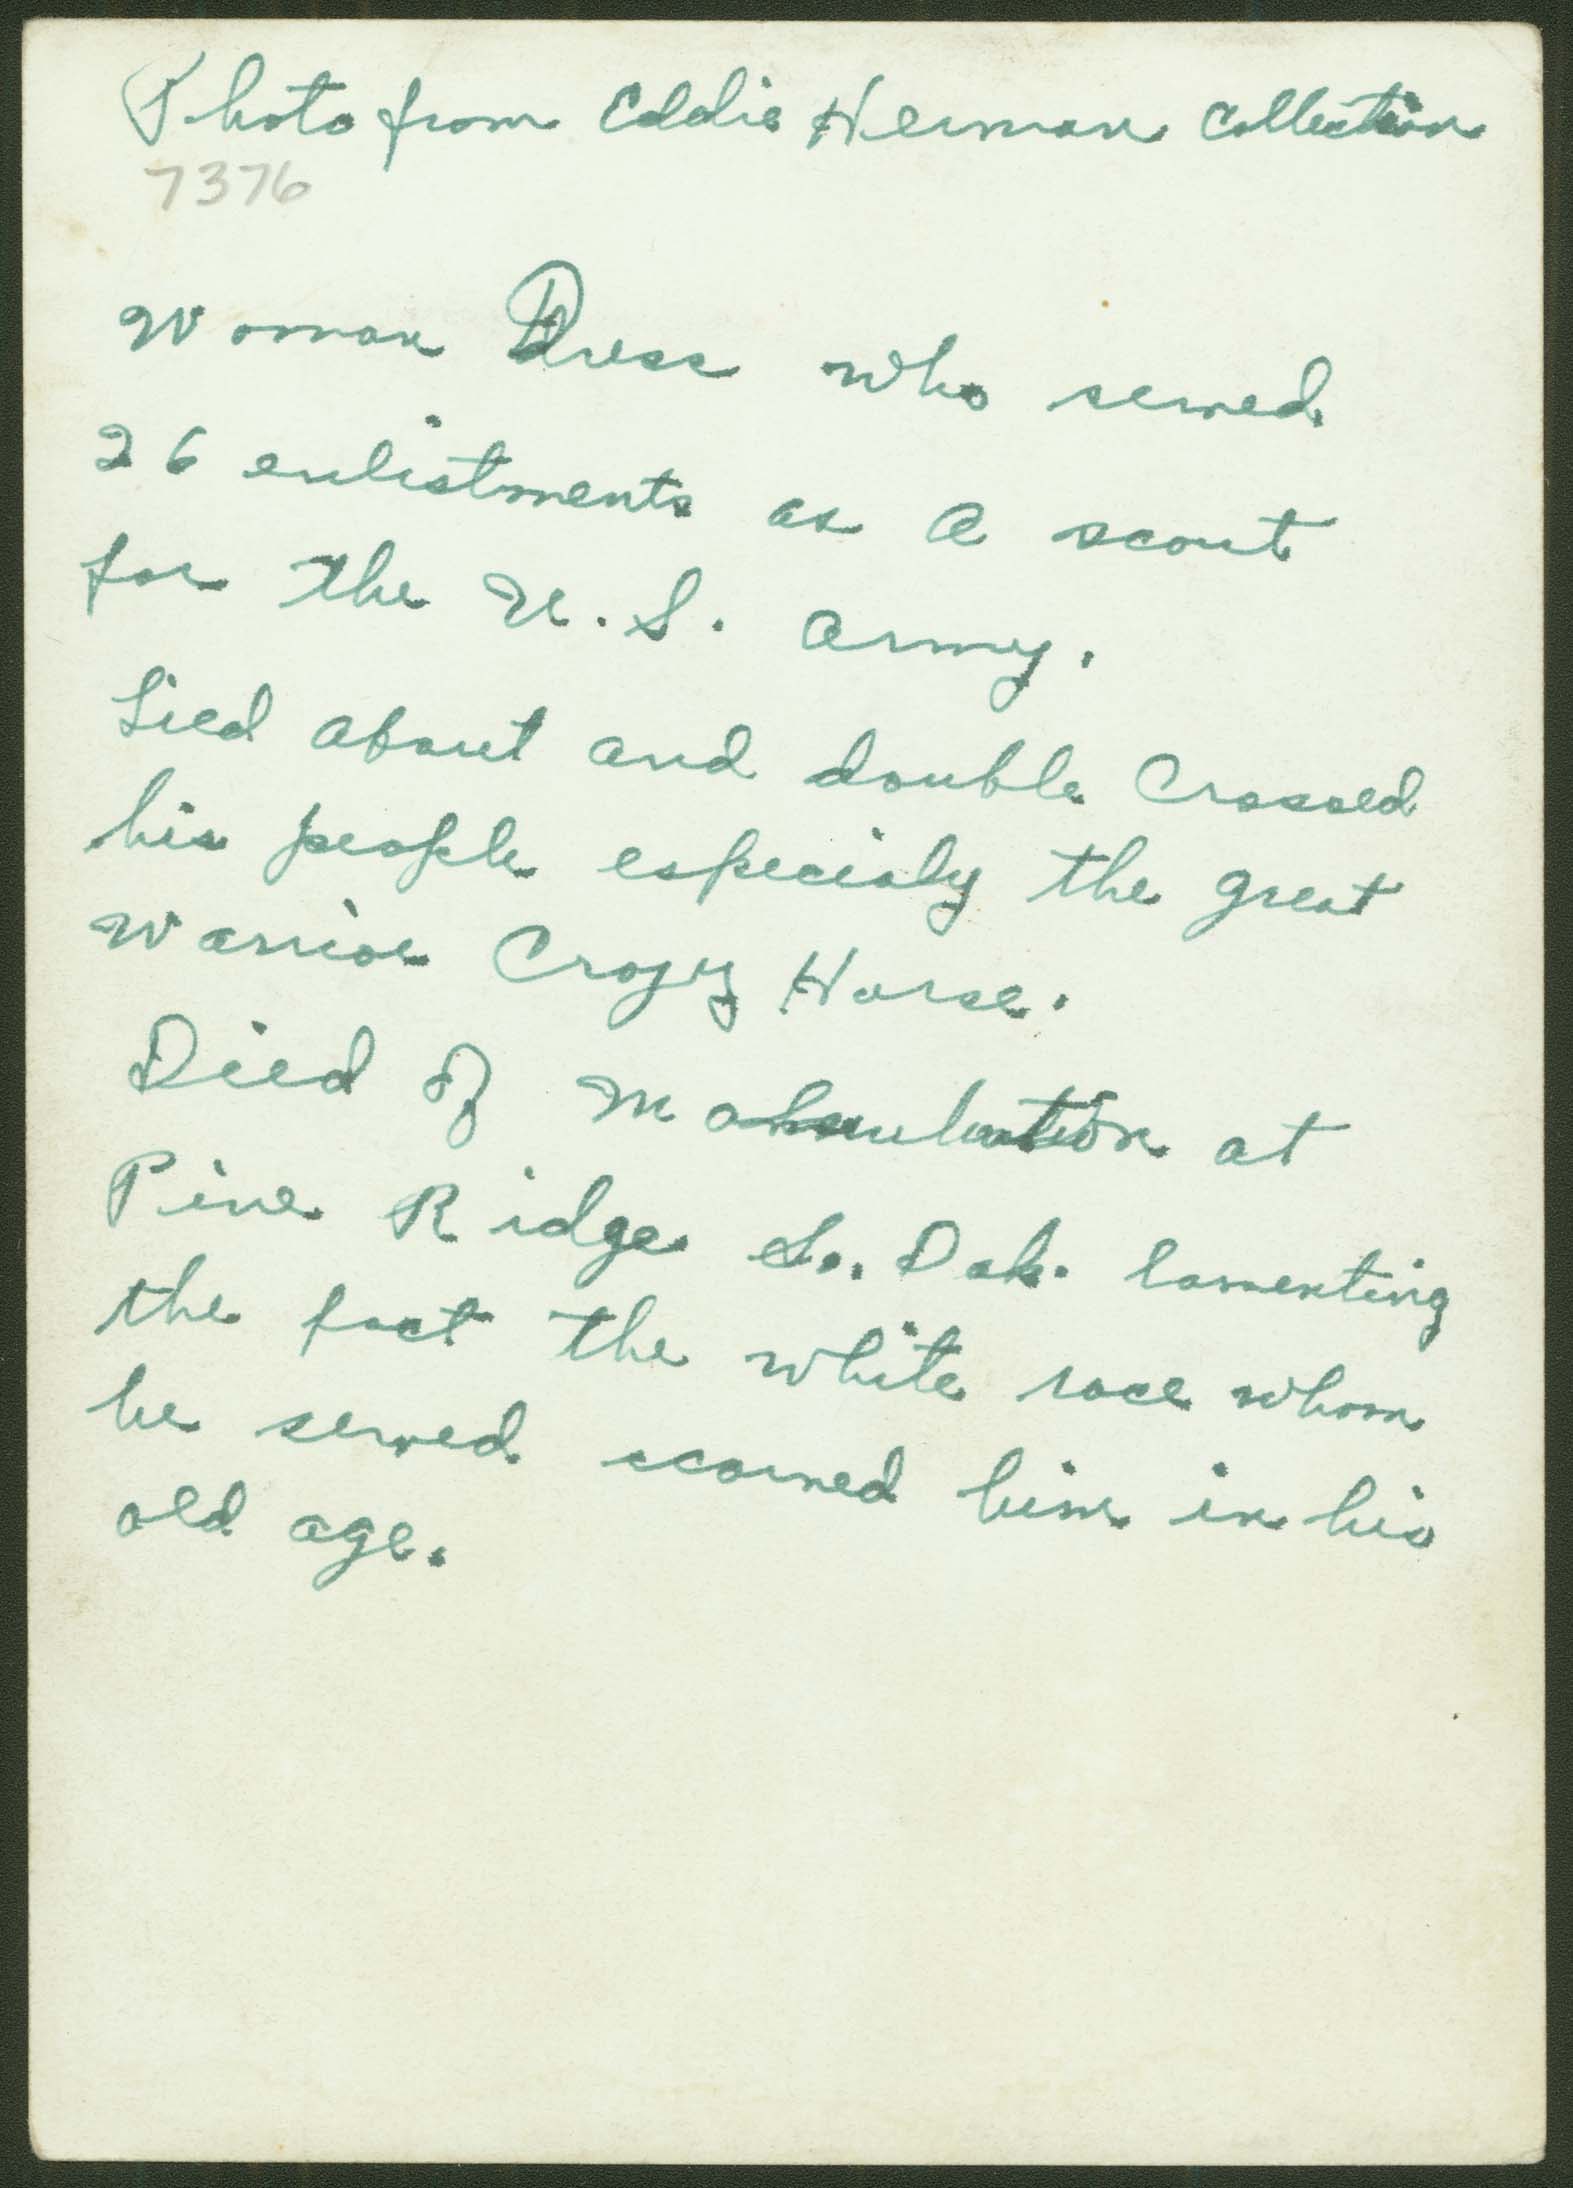 Photo from Eddie Herman Collection
7376
Woman Dress who served
26 enlistments as a scout
for the U.S. Army.
Lied about and double Crossed
his people especialy the great
Warrior Crazy Horse.
Died of at
Pine Ridge So. Dak. lamenting
the fact the white race whom
he served scorned him in his
old age.